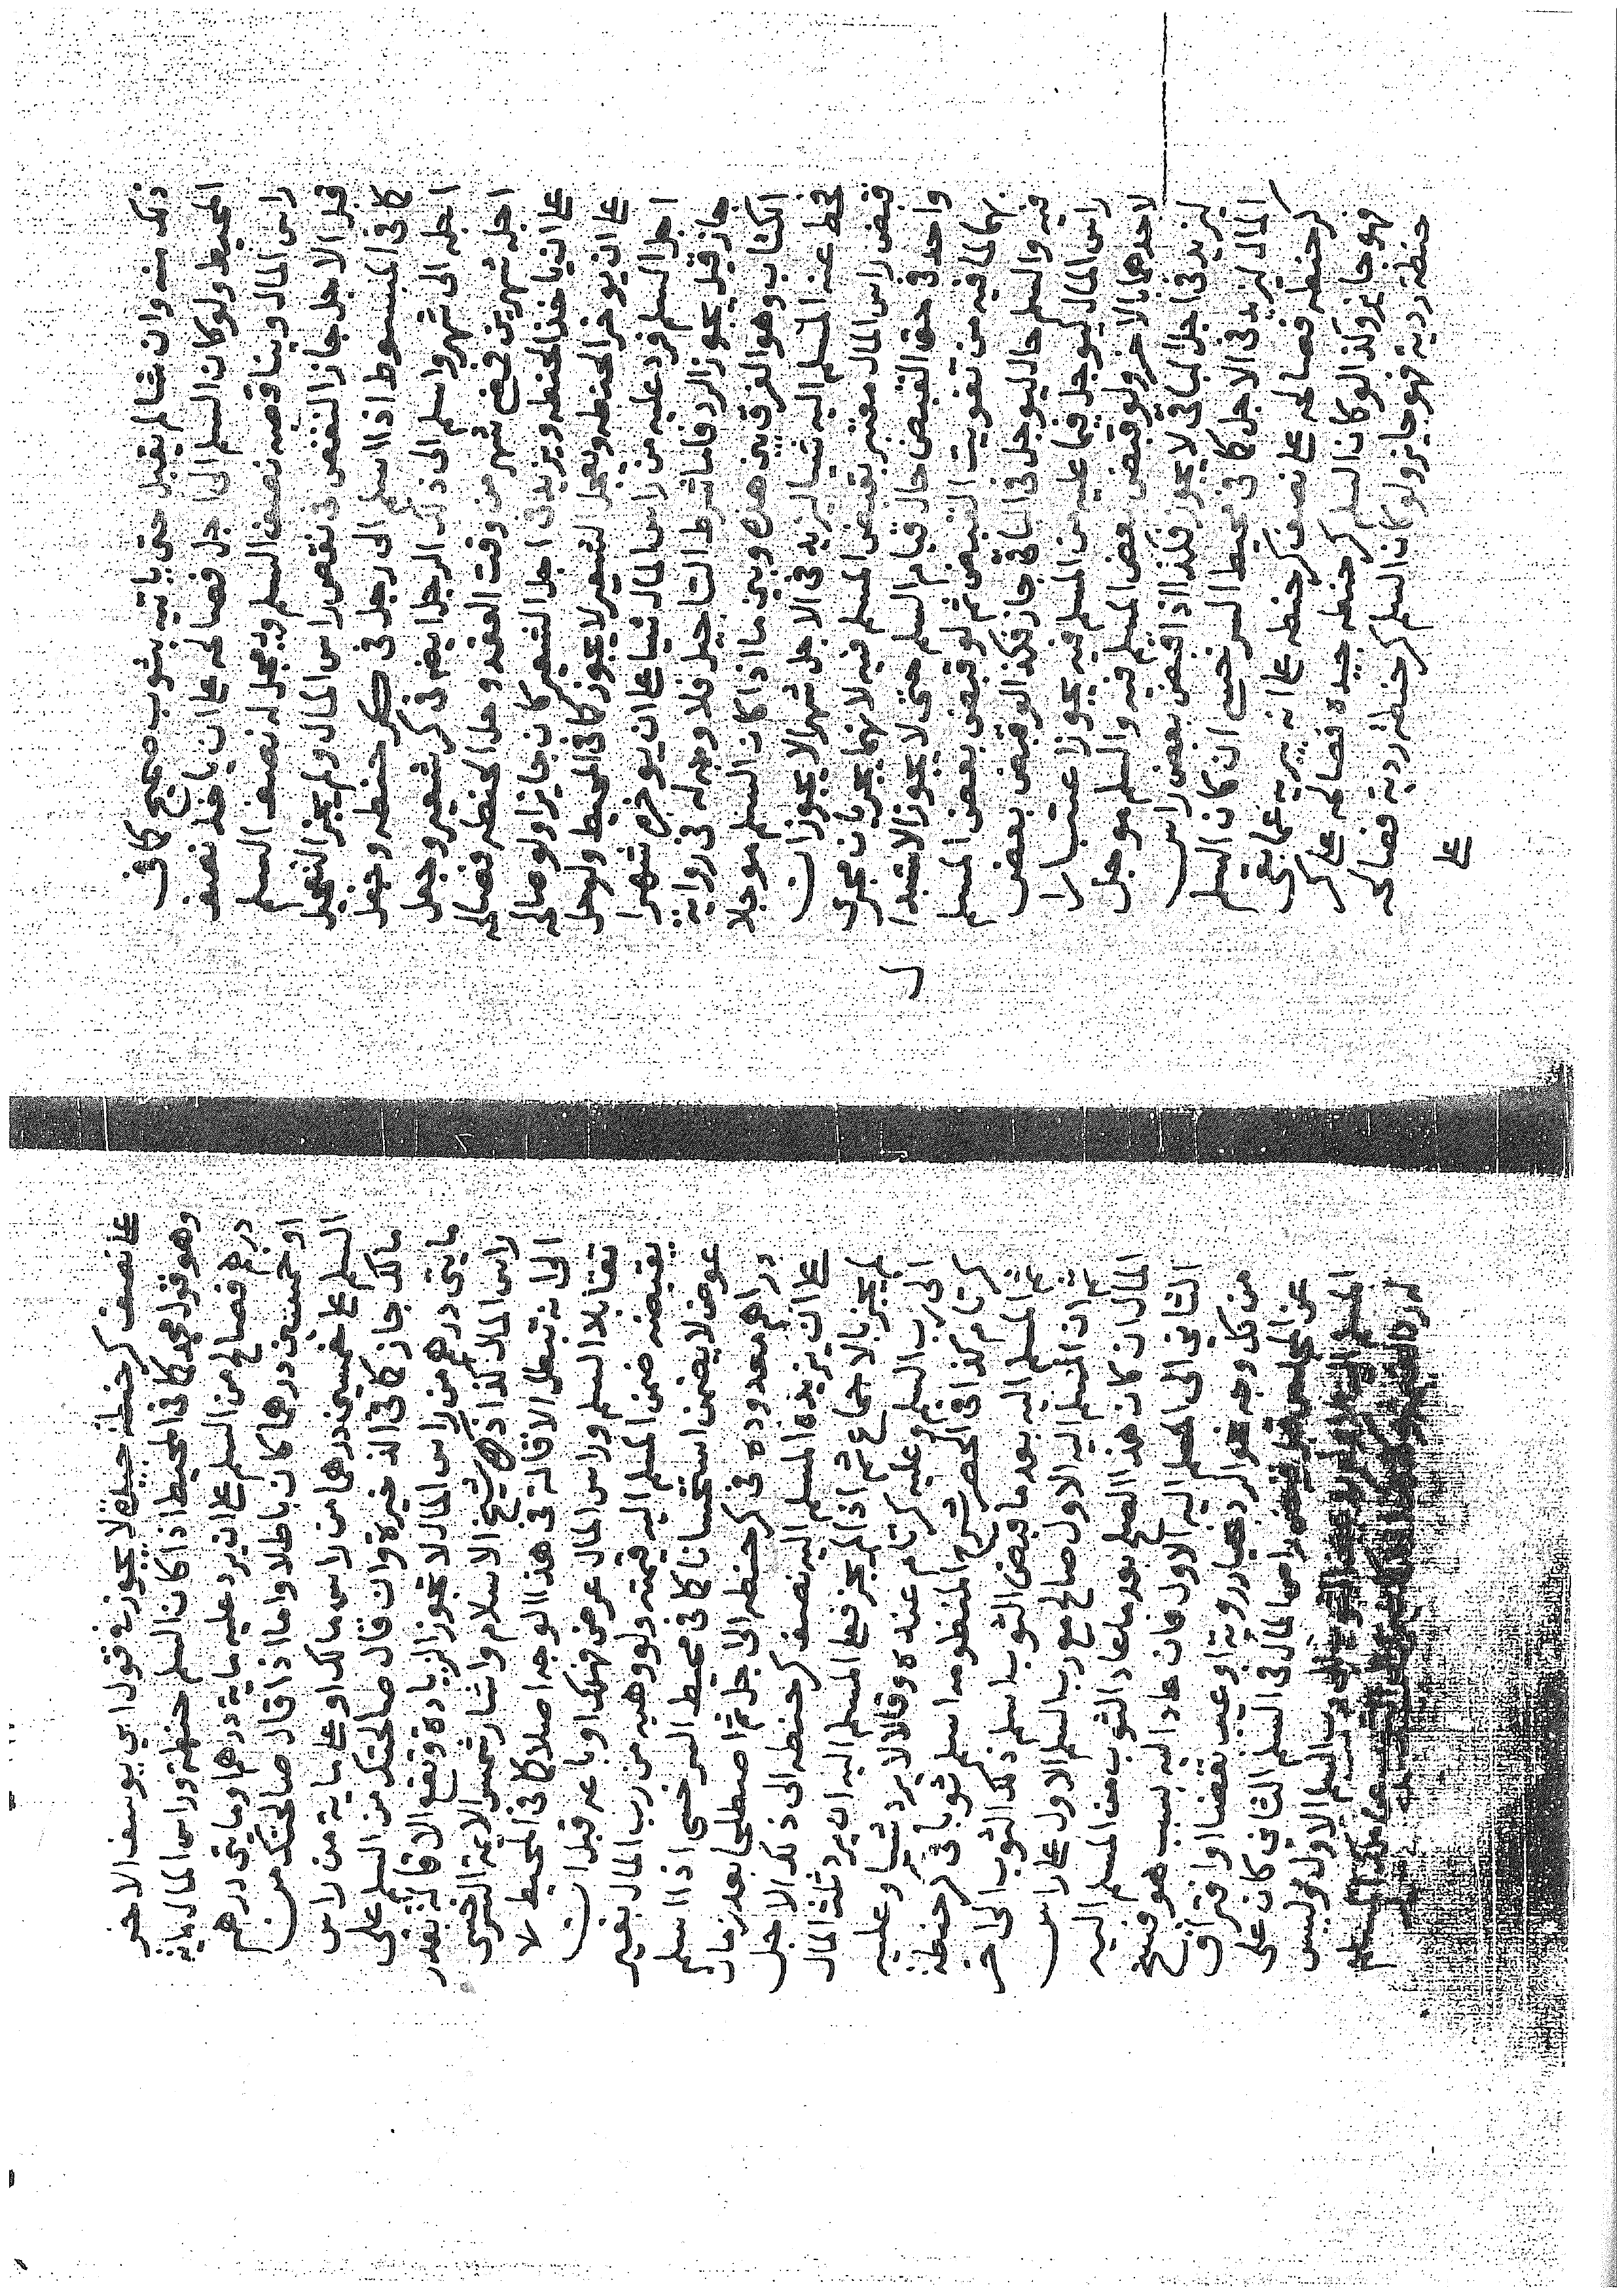 ذلك منه وان شا لم يقبل حتى ياتيه بثوب صحيح كا فى
المحيط ولو كان السلم الى اجل فصالحه على ان ياخذ نصف
راس المال ويناقصه نصف السلم ويعجل له نصف السلم
قبل الاجل جاز النقض فى نقص راس المال ولم يجز التعجيل
كا فى المبسوط اذا اسلم الى رجل فى كر حنطه وجعل
اجله الى شهر واسلم الى ذلك الرجل ايضا فى كر شعير وجعل
اجله شهرين فمضى شهر من وقت العقد وحل الحنطه فصالحه
على ان ياخذ الحنطه ويزيد فى اجل الشعير كان جايزا ولو صالحه
على ان يوخر الحنطه ويعجل الشعير لا يجوز كا فى المحيط ولو حل
اجل السلم فرد عليه من راس المال شيا على ان يوخره شهرا
جاز قيل يجوز الرد فاما شرط التاجيل فلا وجه له فى رواية
الكتاب وهو الفرق بين هذه وبين ما اذا كان السلم موجلا
فحط عنه المسلم اليه شيا ليزيد فى الاجل شهرا لا يجوز ان
قبض راس المال معتبر بقبض المسلم فيه لانهما يجريان مجرى
واحد فى حق القبض حال قيام السلم حتى لا يجوز الاستبدا ل
بهما لما فيه من تفويت القبض ثم لو قبض بعض المسلم
فيه والسلم حال ليوجل فى الباقى جاز فكذا لو قبض بعض
راس المال ليوجل فيما عليه من المسلم فيه يجوز اعتبارا
لاحدهما بالاخر ولو قبض بعض المسلم فيه والسلم موجل
ليزيد فى اجل الباقى لا يجوز فكذا اذا قبض بعض راس
المال ليزيد فى الاجل كا فى محيط السرخسى ان كان السلم
كر حنطه فصالحه على نصف كر حنطه على انه بريه عما بقى
فهو جايز وكذا لو كان السلم كر حنطه جيدة فصالحه على كر
حنطه ردية فهو جايز ولو كان السلم كر حنطه ردية فصالحه
على
على نصف كر حنطة جيدة لا يجوز فى قول ابي يوسف الاخر
وهو قول محمد كا فى المحيط اذا كان السلم حنطة وراس المال ماية
درهم فصالح من السلم على ان يرد عليه ماية درهم او مايتى درهم
او خمسين درهما كان باطلا واما اذا قال صالحتك من
السلم على خمسين درهما من راس مالك او على ماية من راس
مالك جاز كا فى الذخيرة وان قال صالحتك من السلم على
مايتى درهم من راس المال لا تجوز الزيادة وتقع الاقالة بقدر
راس المال كذا ذكره شيخ الاسلام واشار شمس الايمة السرخسى
الى انه تبطل الاقالة فى هذا الوجه اصلا كا فى المحيط لا
تقايلا السلم وراس المال عرض فهلك او باعه قبل ان
يقبضه ضمن المسلم اليه قيمته ولو وهبه من رب المال بغير
عوض لا يضمن استحسانا كا فى محيط السرخسى اذا اسلم
دراهم معدوده فى كر حنطه الى اجل ثم اصطلحا بعد زمان
على ان يزيده المسلم اليه نصف كر حنطه الى ذلك الاجل
لم يجز بالاجماع ثم اذا لم يجز فعلى المسلم اليه ان يرد ثلث المال
الى رب السلم وعليه كر تام عنده وقالا لا يرد شيا وعليه
كر تام كذا فى الحصر شرح المنظومه اسلم ثوبا فى كر حنطة
ثم المسلم اليه بعد ما قبض الثوب اسلم ذلك الثوب الى اخر
ثم ان المسلم اليه الاول صالح مع رب السلم الاول على راس
المال ان كان هذا الصلح بعد ما عاد الثوب من المسلم اليه
الثانى الى المسلم اليه الاول فان عاد اليه بسبب هو فسخ
من كل وجه نحو الرد بخيار روية او عيب بقضا او افتراق
عن المجلس قبل قبض راس المال فى السلم الثانى كان على
المسلم اليه الاول رد عين الثوب الى رب السلم الاول وليس